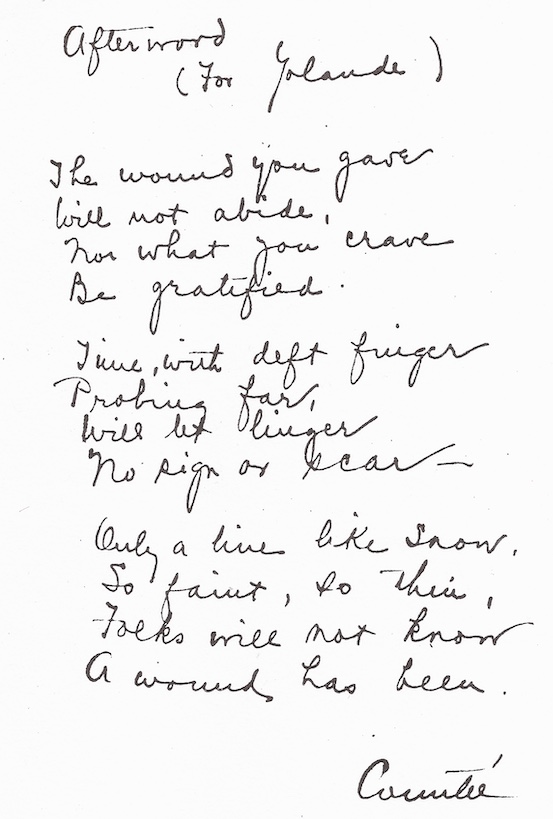 Afterword
(For Yolande)
The wound you gave
Will not abide,
Nor what you crave
Be gratified.
Time, with deft finger
Probing far,
Will let linger
No sign or scar—
Only a line like snow,
So faint, so thin,
Folks will not know
A wound has been.
Countée